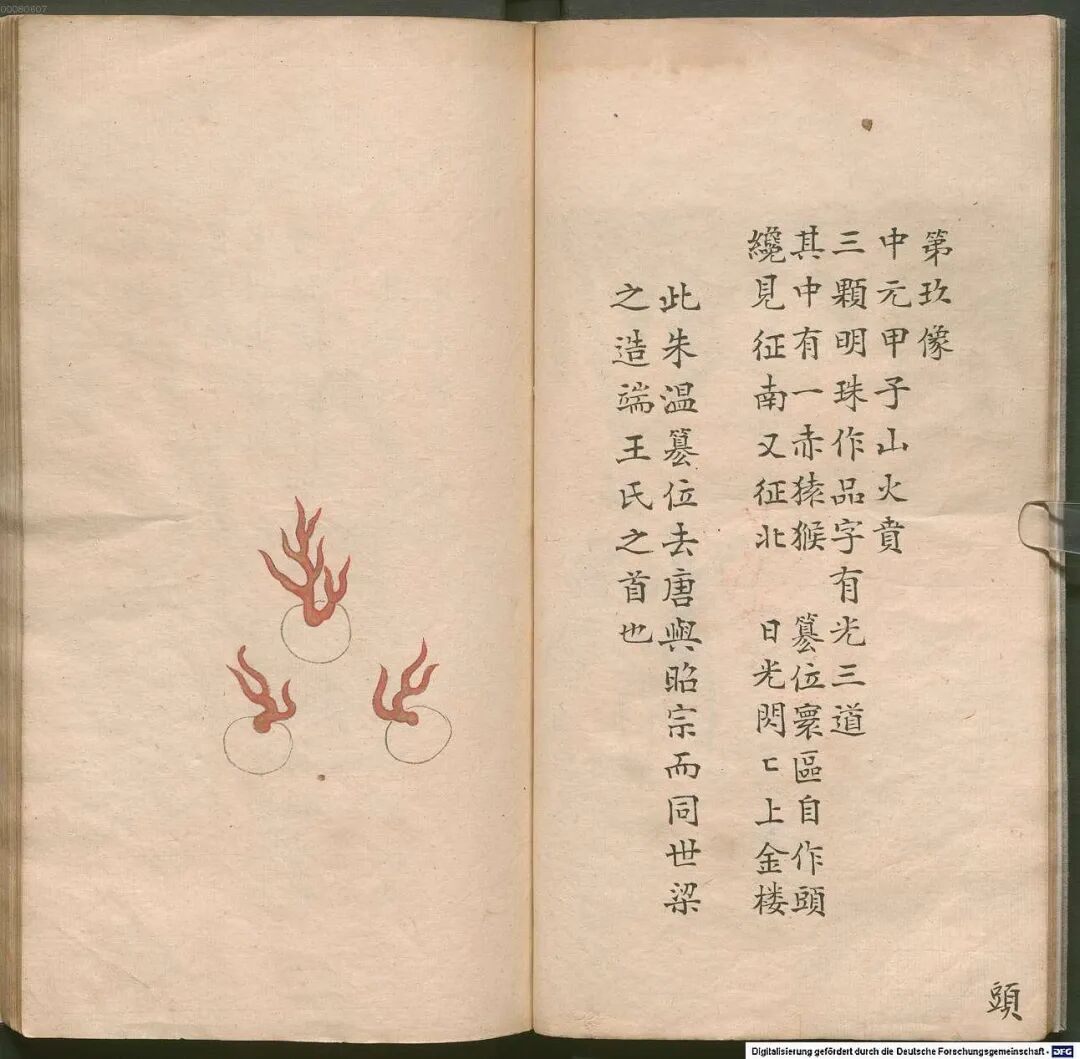 00080607
第玖像
中元甲子山火賁
三顆明珠作品字有光三道
其中有一赤猿猴 篡位寰區自作頭
纔見征南又征北 日光閃匕上金楼
此朱温篡位去唐與昭宗而同世梁
之造端王氏之首也
頭
Digitalisierung gefördert durch die Deutsche Forschungsgemeinschaft - DFG